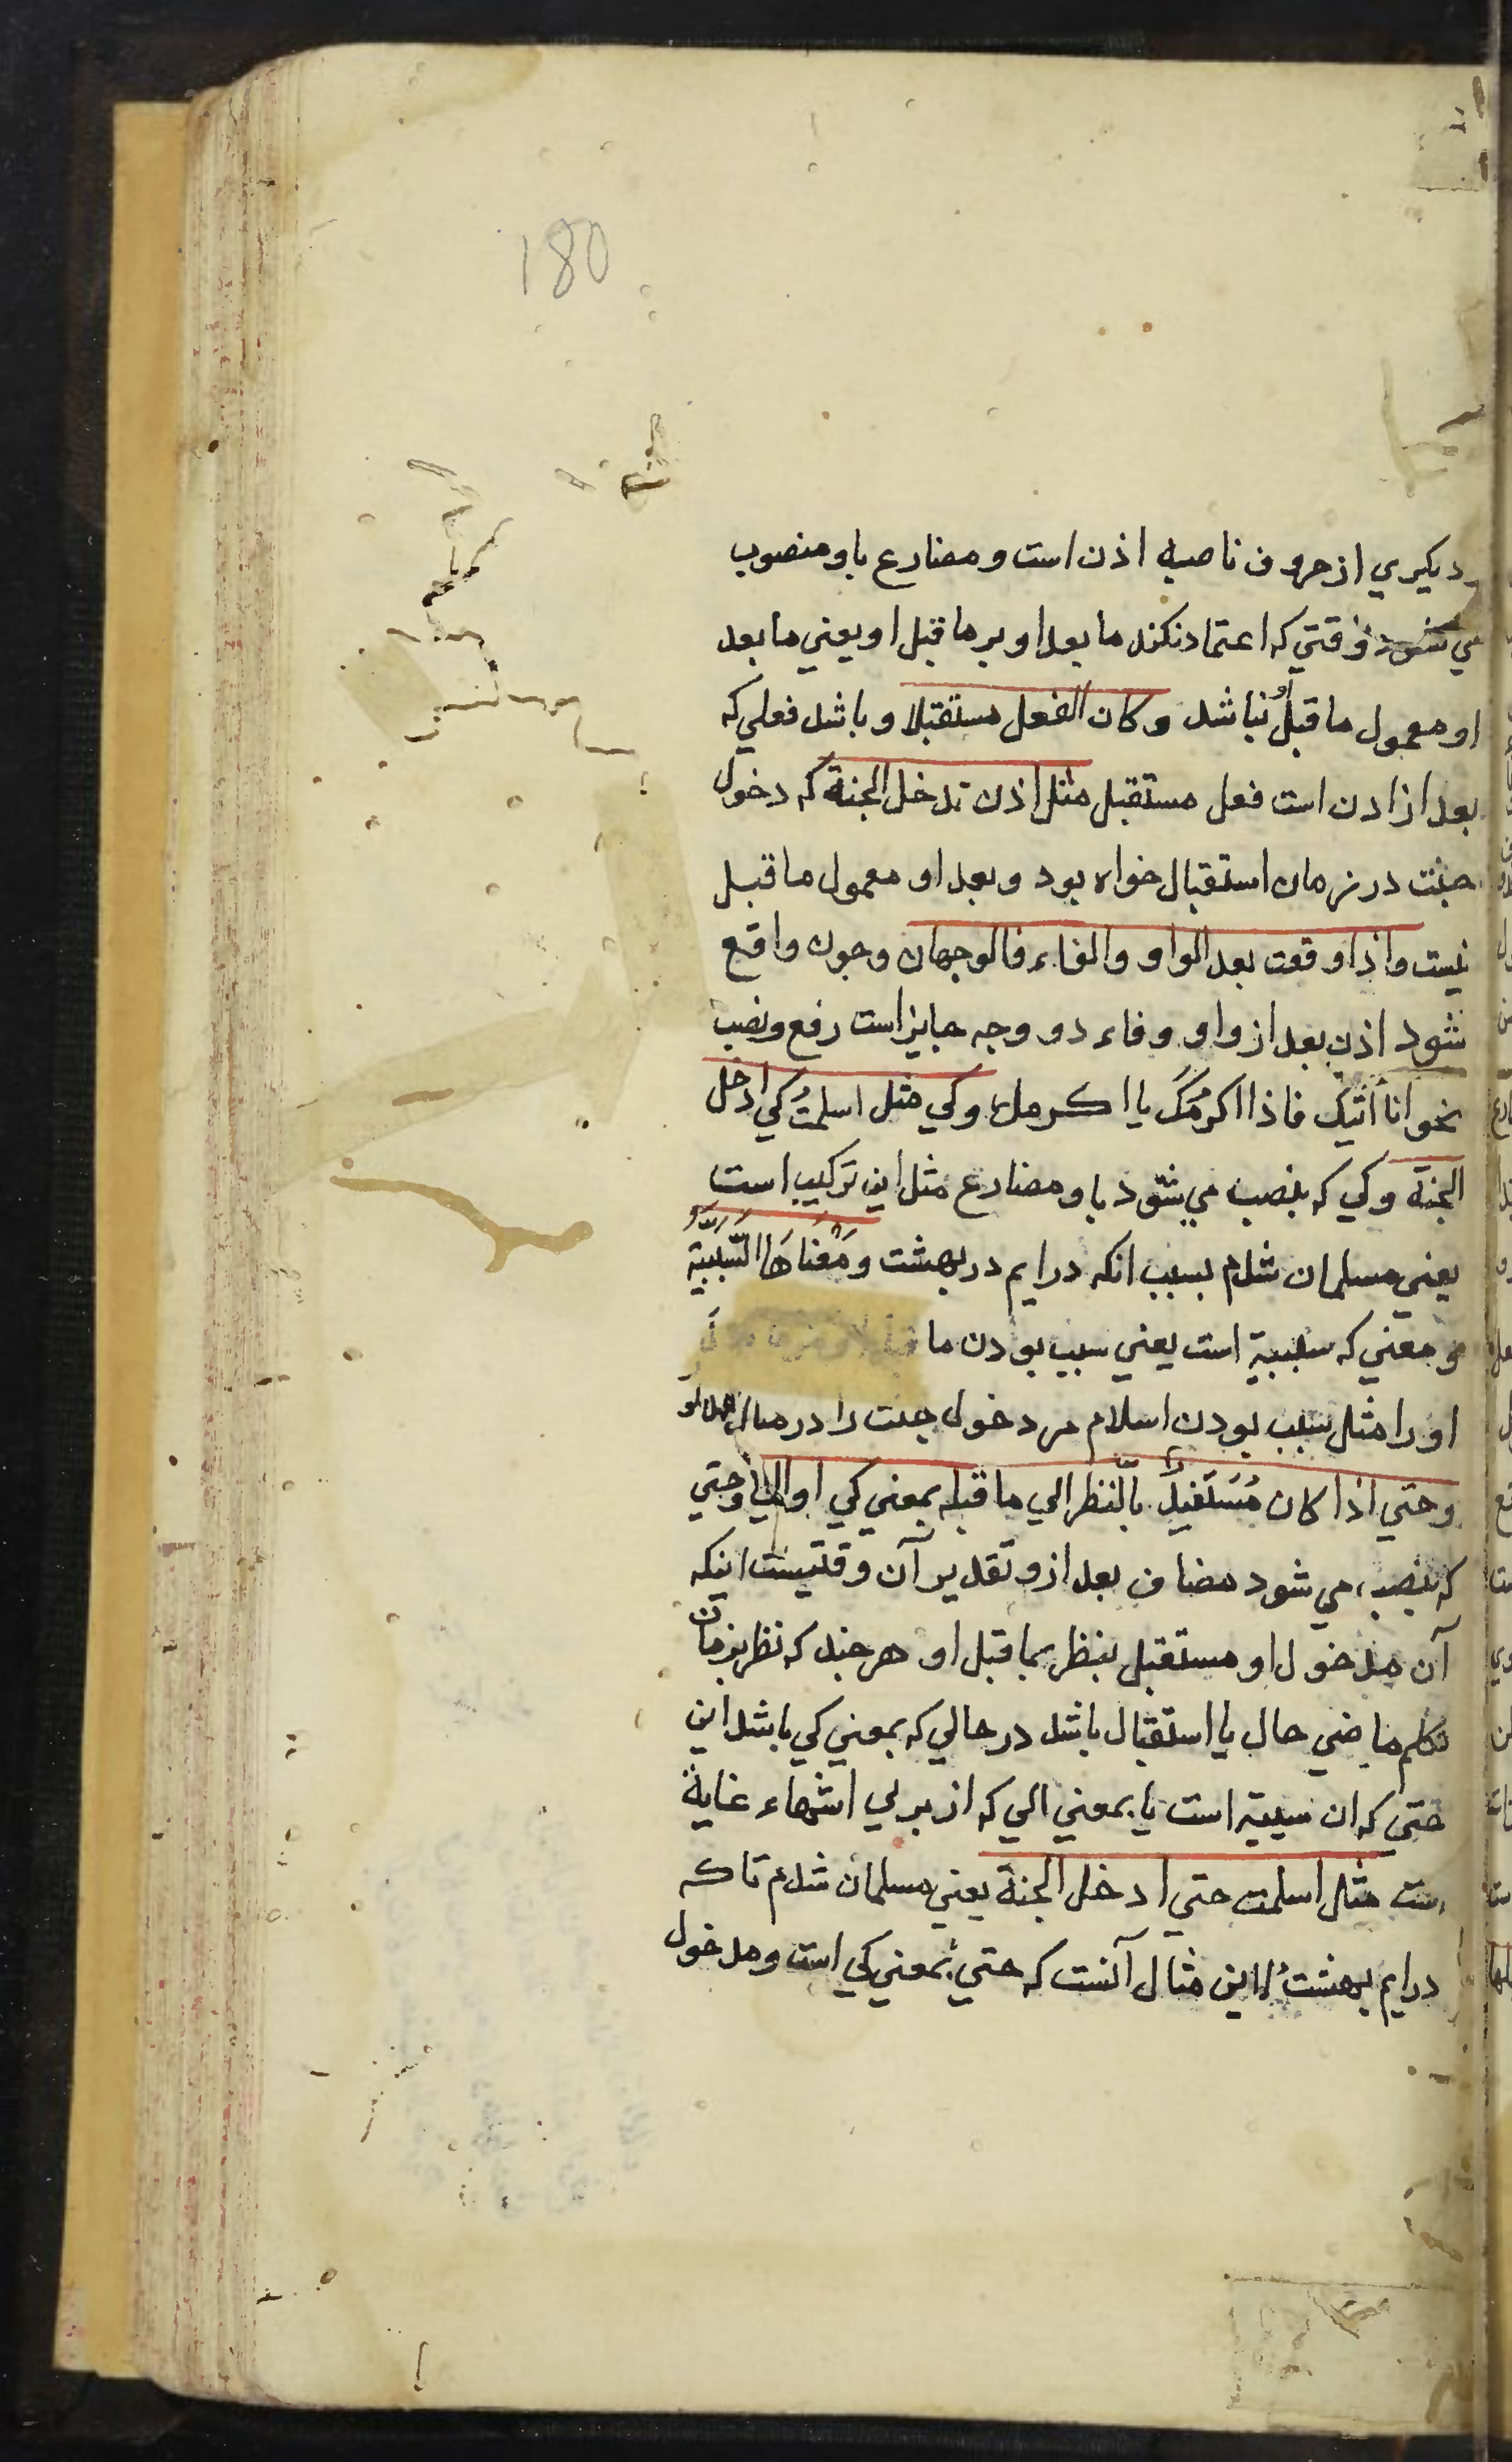 180
دیکیري از حروف ناصبه اذن است و مضارع باو منصوب
مي شود وقتي که اعتماد نکند ما بعد او بر ما قبل او یعني ما بعد
او معمول ما قبل او نباشد وکان الفعل مستقبلا و باشد فعلي که
بعد از اذن است فعل مستقبل مثل اذن تدخل الجنة که دخول
جنت در زمان استقبال خواه بود و بعد او معمول ما قبل
نیست واذا وقعت بعد الواو والفاء فالوجهان وچون واقع
شود اذن بعد از واو و فاء دو وجه جایز است رفع و نصب
نحو انا اتیک فاذا اکرمک یا اکرمک وکي مثل اسلمتُ کي ادخل
الجنة وکي که بنصب مي شود باو مضارع مثل این ترکیب است
یعني مسلمان شدم بسبب انکه درایم در بهشت وَمَعْنَاهَا السَّبَبِیَّةُ
و معني که سببیة است یعني سبب بودن ما
او را مثل سبب بودن اسلام مر دخول جنت را در مثال
وحتي اذا کان مُسْتَقْبِلاً بالنّظر الي ما قبله بمعني کي او الي وحتي
که بنصب مي شود مضاف بعد ازو تقدیر آن وقتیست اینکه
آن مدخول او مستقبل بنظر بما قبل او هر چند که نظر بزمان
تکلم ماضي حال یا استقبال باشد در حالي که بمعني کي باشد این
حتي که ان سببیة است یا بمعني الي که از براي انتهاء غایة
ست مثل اسلمت حتي ادخل الجنة یعني مسلمان شدم تا که
درایم بهشت را این مثال آنست که حتي بمعني کي است و مدخول